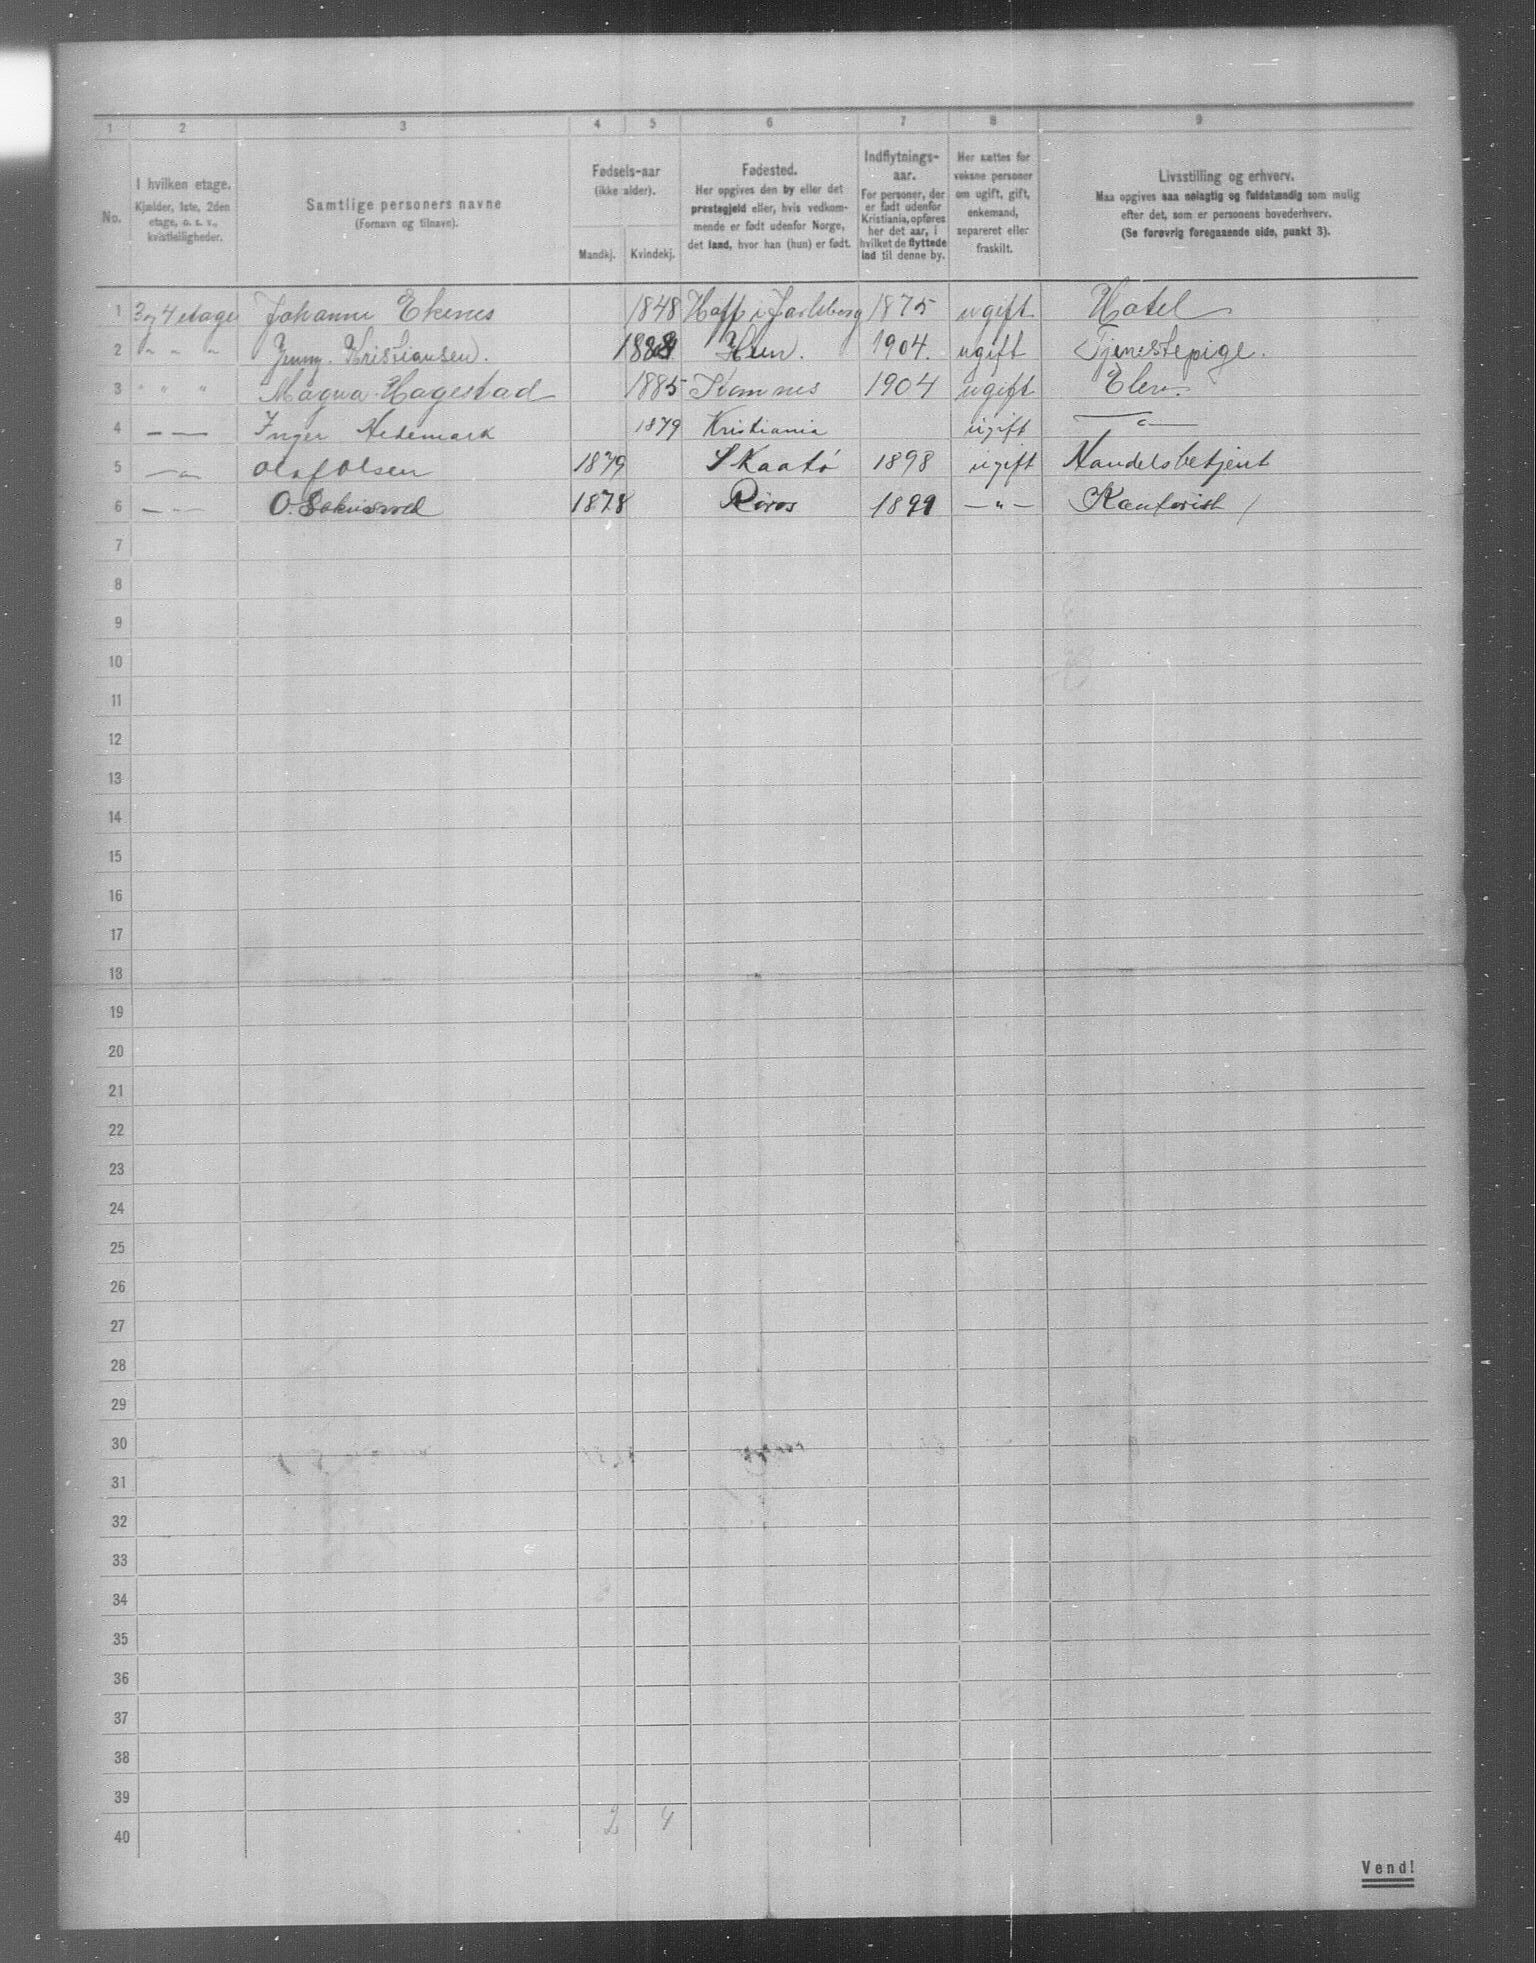 1 2 3 4 5 6 7 8 9
No.
I hvilken etage.
Kjælder, 1ste, 2den
etage, o. s. v.,
kvistleiligheder.
Samtlige personers navne
(Fornavn og tilnavn).
Fødsels-aar
(ikke alder).
Mandkj. Kvindekj.
Fødested.
Her opgives den by eller det
prestegjeld eller, hvis vedkom-
mende er født udenfor Norge,
det land, hvor han (hun) er født.
Indflytnings-
aar.
For personer, der
er født udenfor
Kristiania, opføres
her det aar, i
hvilket de flyttede
ind til denne by.
Her sættes for
voksne personer
om ugift, gift,
enkemand,
separeret eller
fraskilt.
Livsstilling og erhverv.
Maa opgives saa nøiagtig og fuldstændig som mulig
efter det, som er personens hovederhverv.
(Se forøvrig foregaaende side, punkt 3).
1 3 og 4 etage Johanne Ekenes 1848 Hoff i Jarlsberg 1875 ugift Hotel
2 " " " Jenny Kristiansen. 1884 1904. ugift Tjenestepige.
3 " " " Magna Hagestad 1885 1904 ugift Elev.
4 — — Inger Hedemark 1879 Kristiania ugift — " —
5 — " — Olaf Olsen 1879 Skaatø 1898 ugift Handelsbetjent
6 — " — O. 1878 Røros 1899 — " — Kontorist
7
8
9
10
11
12
13
14
15
16
17
18
19
20
21
22
23
24
25
26
27
28
29
30
31
32
33
34
35
36
37
38
39
40 2 4
Vend!